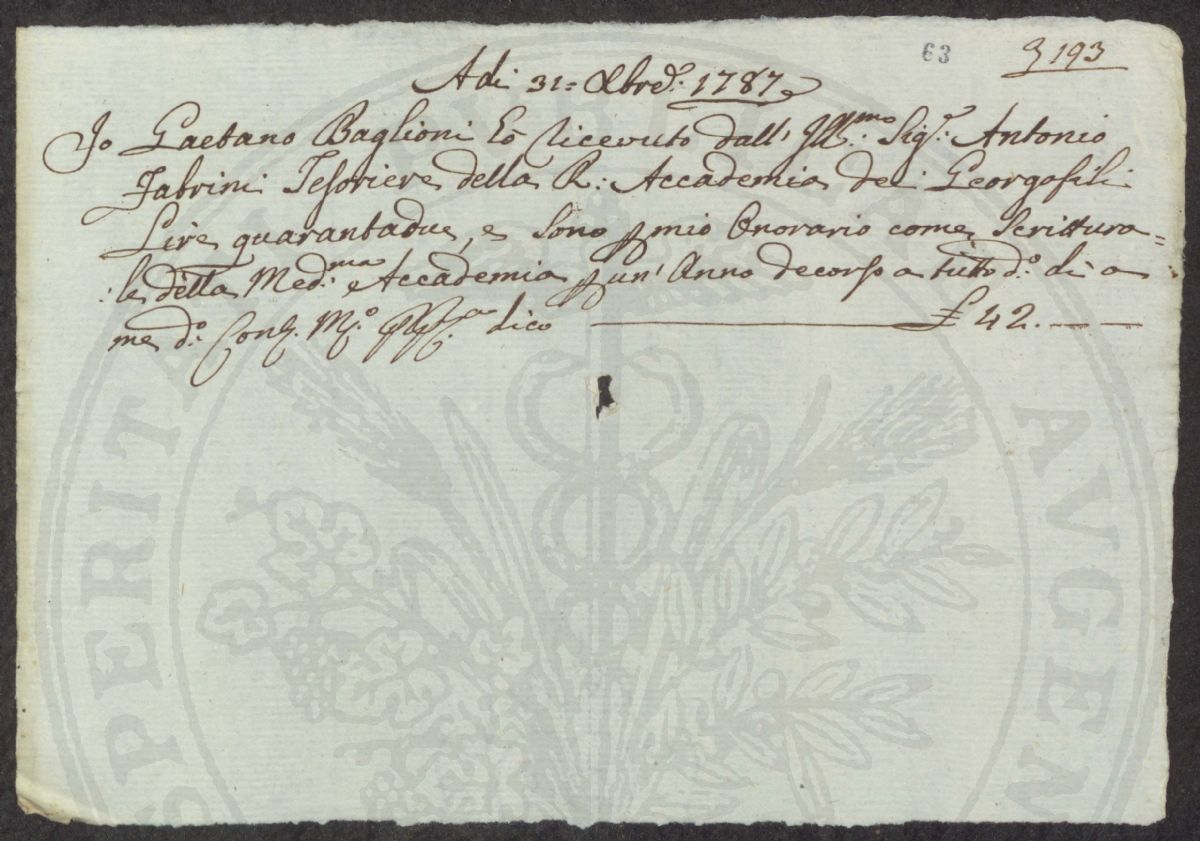 63
193
Adi 31= Xbre. 1787
Io Gaetano Baglioni hò riceuuto dall' Ill.mo Sig.r Antonio
Fabrini Tesoriere della R: Accademia dei Georgofili
Lire quarantadue, e sono p mio Onorario come Scrittura=
:le della Med.ma Accademia p un' Anno decorso a tutto d.o dì a
me d.o dico £ 42.----
PROSPERITATI AVGEN